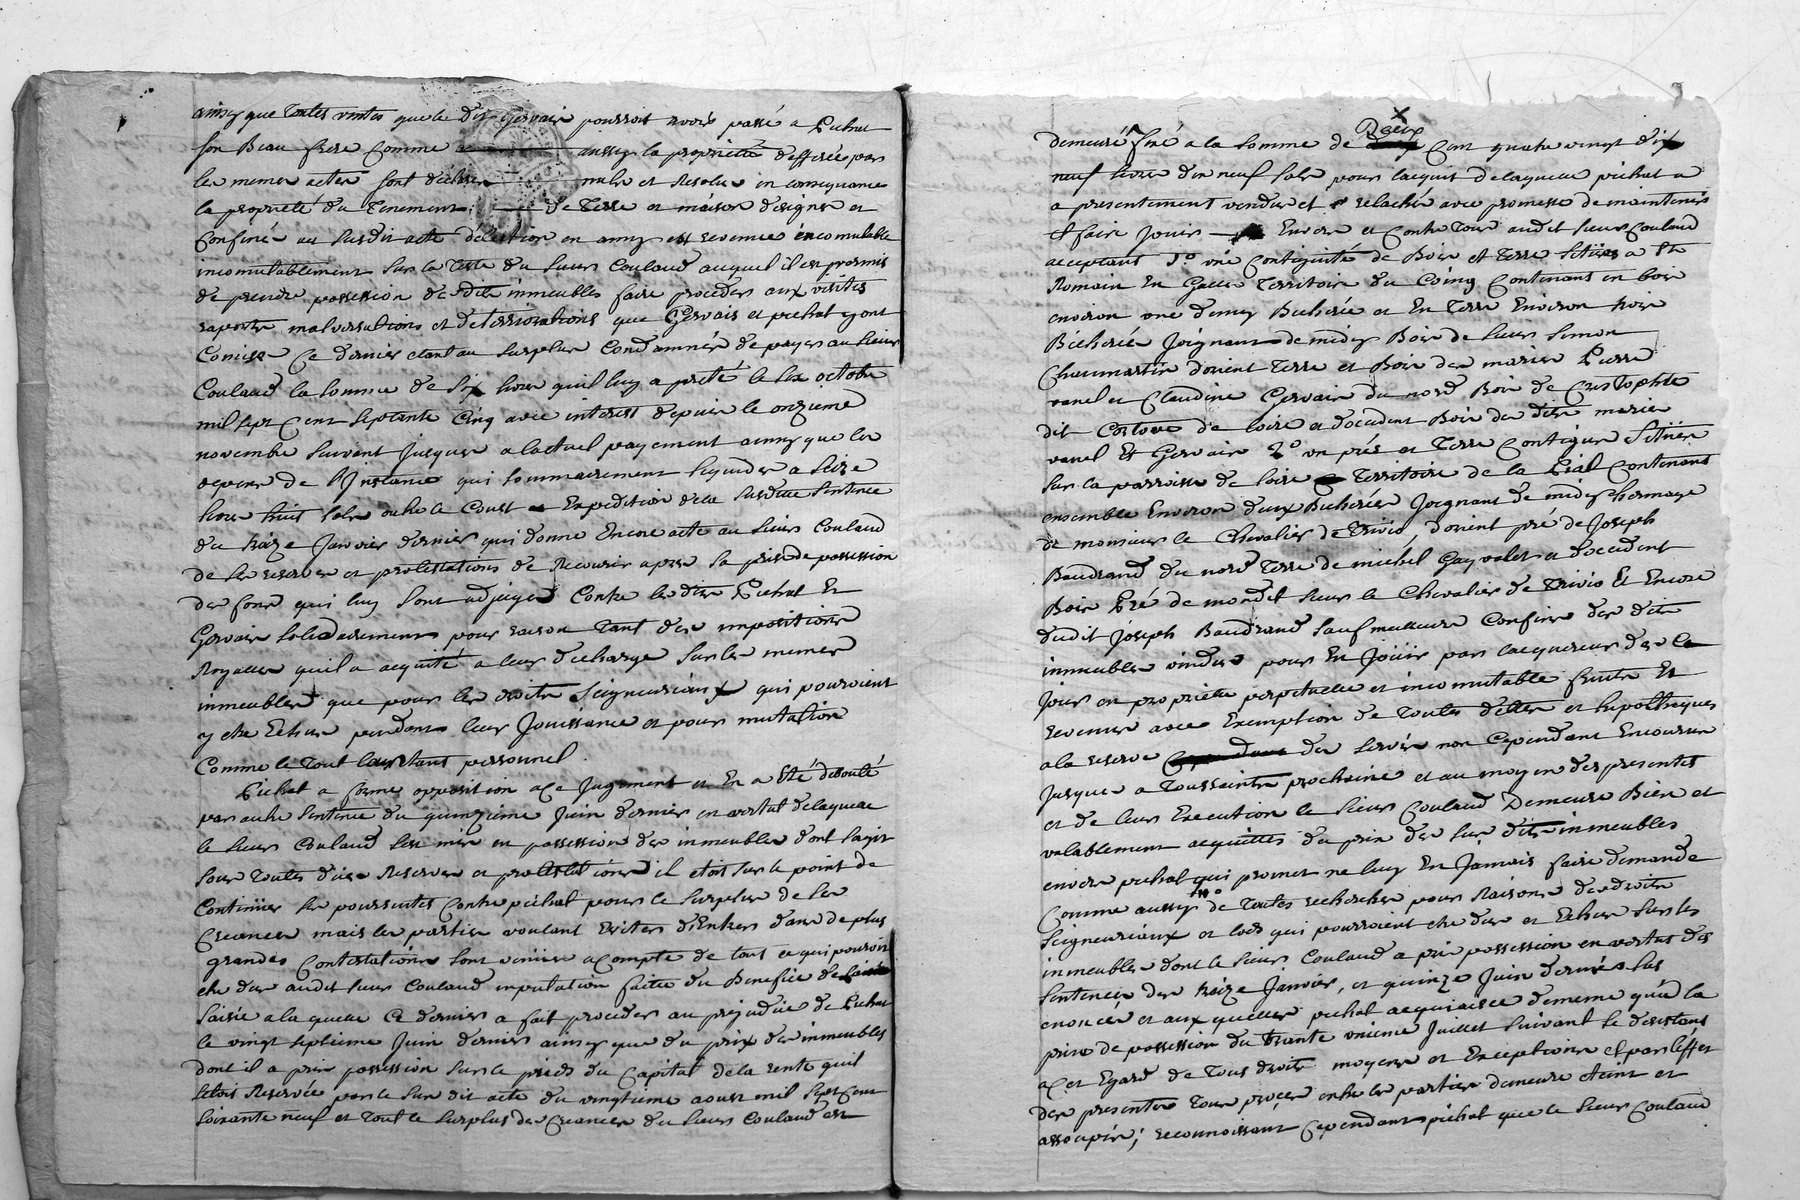 ainsy que toutes ventes que le dit Gervais pourroit avoir passé a Pichat
son Beau frere Comme aussy la proprieté defferée par
les memes actes sont declarés nuls et resolus en consequance
la proprieté du Tenement de Terre et maison designés et
Confinés au susdit acte en amy est revenue incomutable
incomutablement sur la Teste du sieur Couland auquel il est promis
de prendre possession desdits immeubles faire proceder aux visites
raports malversations et deteriorations que Gervais et pichat y ont
Comise Ce dernier etant au surplus Condamnés de payer au sieur
Couland la somme de six livres quil luy a preté le six octobre
mil sept Cent septante Cinq avec interest depuis le onzieme
novembre suivant jusques a lactuel payement ainsy que les
depens de l'Instance qui sommairement liquidés a seize
livres huit sols outre le Coust et Expedition de la susditte sentence
du treize Janvier dernier qui donne Encore acte au sieur Couland
de ses reserves et protestations de recourir apres sa prise de possession
des fonds qui luy sont adjugés Contre lesdits Pichat et
Gervais solidairement pour raison tant des impositions
Royalles quil a acquité a leur decharge sur les memes
immeubles que pour les droits seigneuriaux qui pouroient
y etre Echus pendant leur Jouissance et pour mutation
Comme le tout leur etant personnel.
Pichat a formé opposition a ce Jugement et En a Eté debouté
par autre sentence du quinzieme Juin dernier en vertut delaquelle
le sieur Couland sest mis en possession des immeubles dont sagit
sous toutes dues reserves et protestations il etoit sur le point de
Continüer ses poursuites contre pichat pour le surplus de ses
Creances mais les parties voulant Eviter d'Entrer dans de plus
grandes Contestations sont viniies a compte de tout ce qui pouroit
etre due audit sieur Couland inputation faitte du Benefice de la
saisie a la quelle Ce dernier a fait proceder au prejudice de Pichat
le vingt septieme Juin dernier ainsy que du prix des immeubles
dont il a pris possession sur le pied du Capital de la rente quil
setois Reservée par le sus dit acte du vingtieme aoust mil sept Cent
soixante neuf et tout le surplus des Creances du sieur Couland est
demeuré fixé a la somme de Deux Cent quatre vingt dix
neuf livres dix neuf sols pour lacquit delaquelle pichat a
a presentement vendu et relaché avec promesse de maintenir
et faire jouir Envers et Contre tous audit sieur Couland
acceptant 1o une Contiguité de Bois et Terre sitües a St
Romain En Gallier Territoire du Coing Contenant en bois
environ une demy Bicherée et En Terre Environ trois
Bicherées Joignant de midy Bois de sieur Simon
Chaumartin dorient Terre et Bois des mariés Pierre
vanel et Claudine Gervais du nord Bois de Cristophle
dit de loire et doccident Bois des dits mariés
vanel Et Gervais 2o un pré et Terre Contigus sitües
sur la parroisse de loire Territoire de la Pial Contenant
ensemble Environ deux Bicherées Joignant de midy
de monsieur le Chevalier de Trivio, dorient pré de Joseph
Baudrand du nord Terre de michel Gayvalet et doccident
Bois Pré de mondit sieur le Chevalier de Trivio Et Encore
dudit Joseph Baudrand sauf meilleurs Confins des dits
immeubles vendus pour En Joüir par lacquereur des Ce
jour en proprieté perpetuelle et incomutable fruits Et
revenus avec Exemption de toutes dettes et hipotheques
a la reserve des servis non Cependant Encourus
Jusques a Toussaints prochaine et au moyen des presentes
et de leur Execution le sieur Couland Demeure Bien et
valablement acquittés du prix des sus dits immeubles
envers pichat qui promet ne luy En Jamais faire demande
Comme aussy de toutes recherches pour raisons de droits
seigneuriaux et lods qui pourroient etre dus et Echus sur les
immeubles dont le sieur Couland a pris possession en vertus des
sentences des treize Janvier, et quinze Juin derniés sus
enoncés et aux quelles pichat acquiaisce dememe qu'a la
prise de possession du trante unieme Juillet suivant se desistant
a cet Egard de tous droits moyens et Exceptions et par leffet
des presentes tous proces entre les parties demeure eteint et
assoupis; reconnoissant Cependant pichat que le sieur Couland